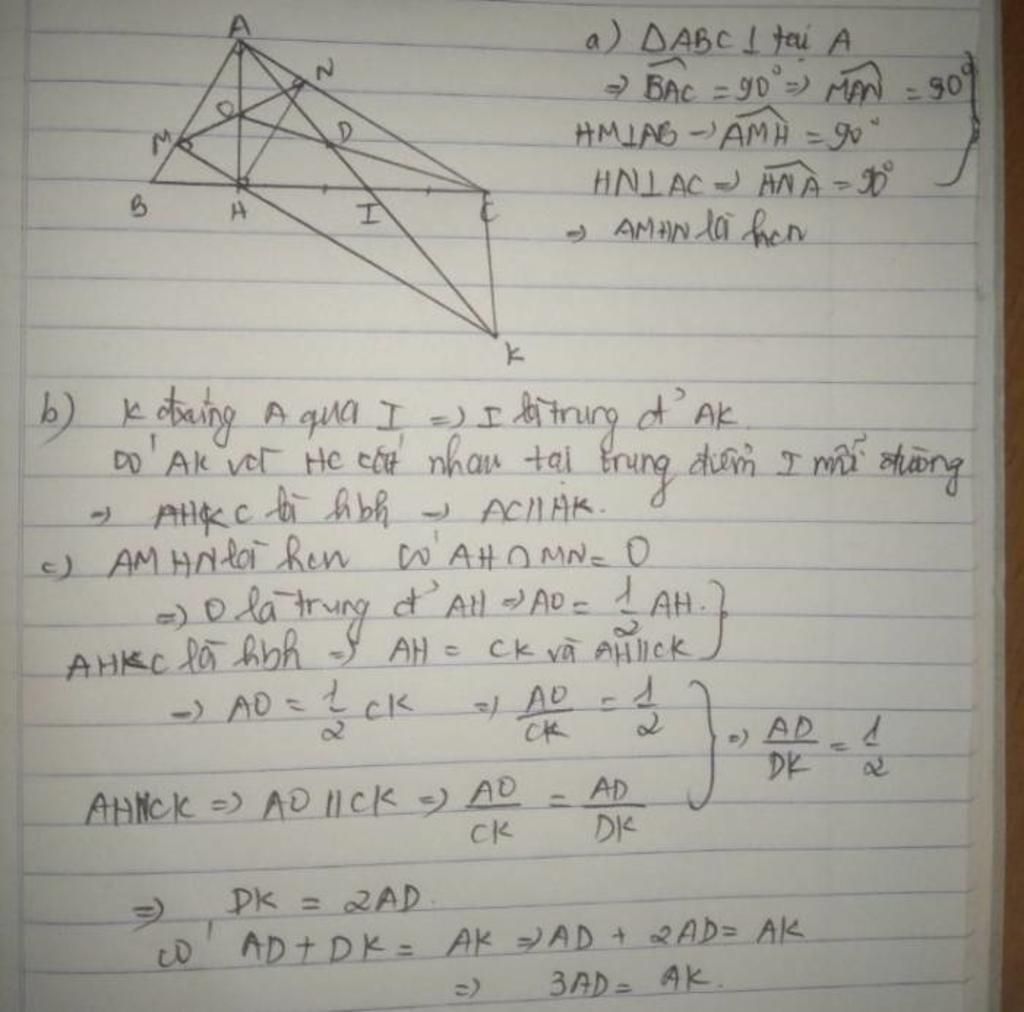 A
N
O
D
M
B
H
I
C
K
a) ΔABC ⊥ tại A
⇒ BAC = 90° ⇒ MAN = 90°
HM⊥AB → AMH = 90°
HN⊥AC ⇒ HNA = 90°
⇒ AMHN là hcn
b) K đxứng A qua I ⇒ I là trung đ' AK.
có AK với HC cắt nhau tại trung điểm I mỗi đường
→ AHKC là hbh → AC∥HK.
c) AMHN là hcn có AH∩MN= O
⇒ O là trung đ' AH ⇒ AO = 1/2 AH.
AHKC là hbh ⇒ AH = CK và AH∥CK
→ AO = 1/2 CK ⇒ AO/CK = 1/2
⇒ AD/DK = 1/2
AH∥CK ⇒ AO∥CK ⇒ AO/CK = AD/DK
⇒ DK = 2AD.
có AD + DK = AK ⇒ AD + 2AD = AK
⇒ 3AD = AK.